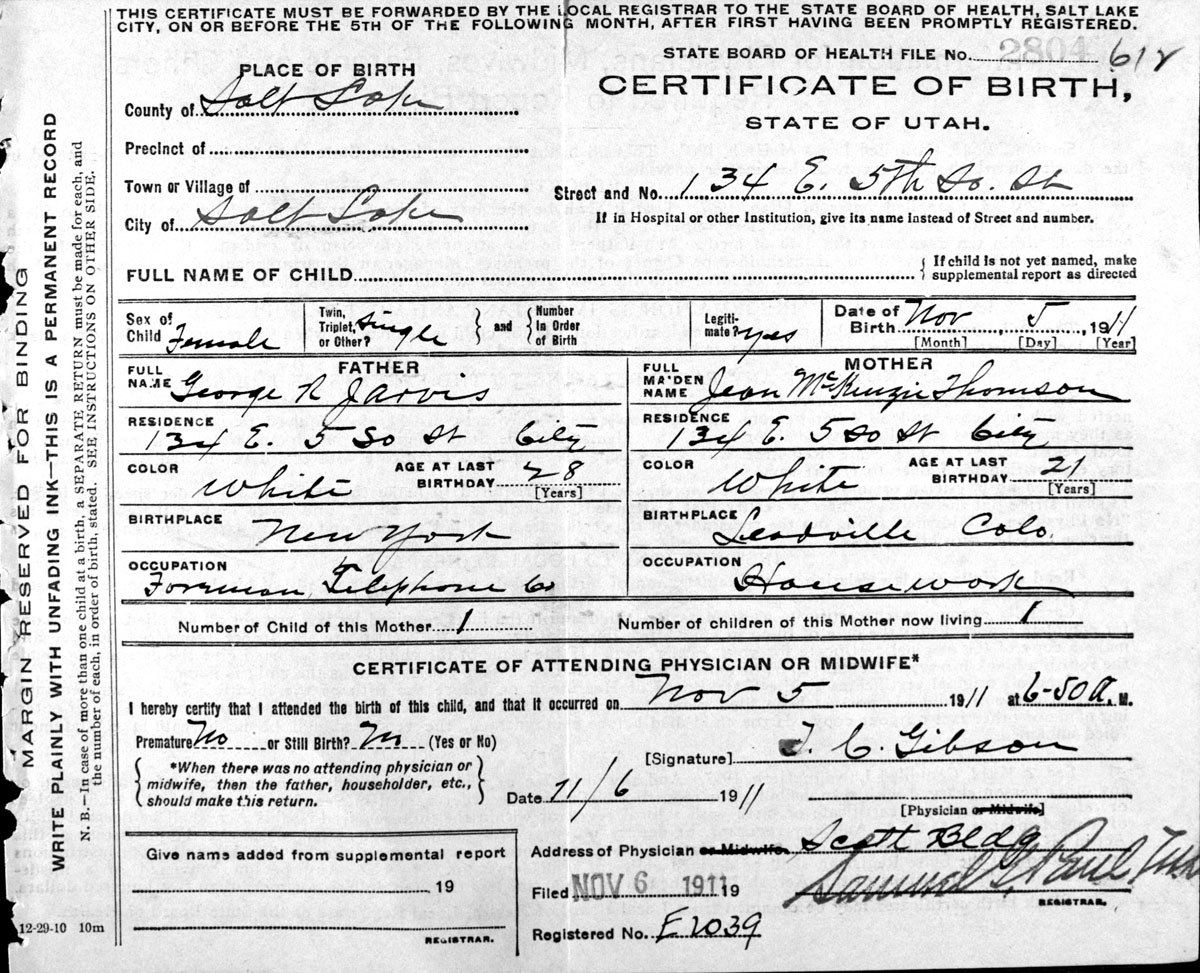 THIS CERTIFICATE MUST BE FORWARDED BY THE LOCAL REGISTRAR TO THE STATE BOARD OF HEALTH, SALT LAKE
CITY, ON OR BEFORE THE 5TH OF THE FOLLOWING MONTH, AFTER FIRST HAVING BEEN PROMPTLY REGISTERED.
STATE BOARD OF HEALTH FILE No. 2804 612
PLACE OF BIRTH
CERTIFICATE OF BIRTH,
STATE OF UTAH.
County of Salt Lake
Precinct of
Town or Village of
Street and No. 134 E. 5th So. St
City of Salt Lake
If in Hospital or other Institution, give its name instead of Street and number.
FULL NAME OF CHILD
If child is not yet named, make
supplemental report as directed
Sex of Child Female
Twin, Triplet, or Other? Single
and
Number In Order of Birth
Legitimate? yes
Date of Birth Nov 5, 1911
[Month] [Day] [Year]
FATHER
FULL NAME George R Jarvis
RESIDENCE
134 E. 5 So St City
COLOR White
AGE AT LAST BIRTHDAY 28
[Years]
BIRTHPLACE
New York
OCCUPATION
Forman, Telephone Co
MOTHER
FULL MAIDEN NAME Jean McKenzie Thomson
RESIDENCE
134 E. 5 So St City
COLOR White
AGE AT LAST BIRTHDAY 21
[Years]
BIRTHPLACE
Leadville Colo.
OCCUPATION
Housework
Number of Child of this Mother 1
Number of children of this Mother now living 1
CERTIFICATE OF ATTENDING PHYSICIAN OR MIDWIFE*
I hereby certify that I attended the birth of this child, and that it occurred on Nov 5 1911 at 6-50 A. M.
Premature No or Still Birth? No (Yes or No)
*When there was no attending physician or
midwife, then the father, householder, etc.,
should make this return.
[Signature] J. C. Gibson
Date 11/6 1911
[Physician or Midwife]
Address of Physician or Midwife Scott Bldg
Give name added from supplemental report
19
REGISTRAR.
Filed NOV 6 1911 19
Samuel G. Paul
REGISTRAR.
Registered No. E2039
12-29-10 10m
MARGIN RESERVED FOR BINDING
WRITE PLAINLY WITH UNFADING INK—THIS IS A PERMANENT RECORD
N. B.—In case of more than one child at a birth, a SEPARATE RETURN must be made for each, and
the number of each, in order of birth, stated. SEE INSTRUCTIONS ON OTHER SIDE.